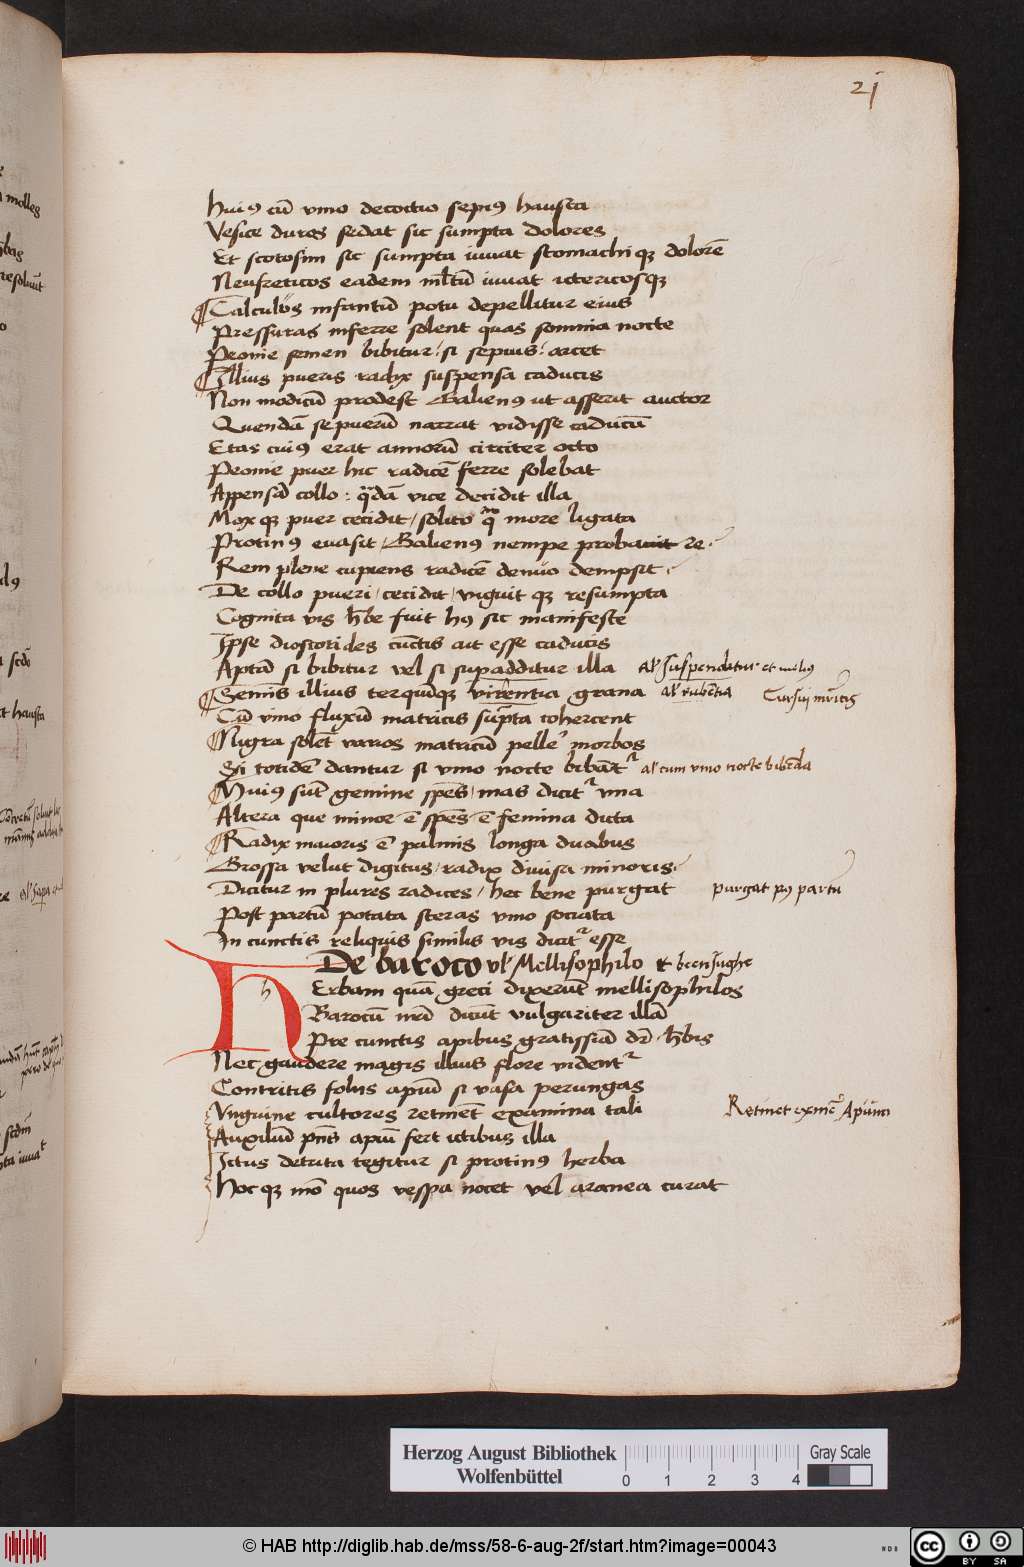 21
hui9 cū vino decoctio sepi9 hausta
Vesice duros sedat sic sumpta dolores
Et scotosim sic sumpta iuuat stomachiqꝫ dolorē
Neufreticos eadem ml̄tū iuuat ictericosqꝫ
¶ Calculus infantū potu depellitur eius
Pressuras inferre solent quas somnia nocte
Peonie semen bibitur / si sepius / arcet
¶ Illius pueris radix suspensa caducis
Non modicū prodest Galien9 ut asserit auctor
Quendā se puerū narrat vidisse caducū
Etas cui9 erat annorū circiter octo
Peonie puer hic radicē ferre solebat
Appensā collo : qͣdā vice decidit illa
Moxqꝫ puer cecidit / solito qͫ more ligata
Protin9 euasit / Galien9 nempe probare
Rem plene cupiens radicē denuo dempsit
De collo pueri / cecidit / viguitqꝫ resumpta
Cognita vis hb̄e fuit hꝰ sic manifeste
Ipse dioscorides cūctis ait esse caducis
Aptā si bibitur vel si supadditur illa al' suspenditur et meliꝰ
¶ Semīs illius terqui̇̄qꝫ virentia grana al' rubētia
Cū vino fluxū matricis sūpta cohercent
¶ Nigra solēt varios matricū pelle' morbos
Si totidē dantur si vino nocte bibāt' al cum vino nocte bibēda
¶ Huius sūt gemine sp̄es / mas dicit' vna
Altera que minor ē sp̄es ē femina dicta
¶ Radix maioris ē palmis longa duobus
Grossa velut digitus / radix diuisa minoris
Dicitur in plures radices / hec bene purgat purgat pꝰ partū
Post partū potata steras vino sociata
In cunctis reliquis similis vis dicit' esse
De baroco vl' Mellisophilo et
h Erbam quā greci dixerūt mellisophilos
Barocū nr̄i dicūt vulgariter illā
Pre cunctis apibus gratissiā dr̄ hb̄is
Nec gaudere magis illius flore vident'
Contritis foliis apiū si vasa perungas
Vnguine cultores retinēt examina tali
Auxiliū pn̄s apiū fert ictibus illa
Ictus detrita tegitur si protin9 herba
Hocqꝫ mō quos vespa nocet vel aranea curat
Herzog August Bibliothek
Wolfenbüttel
0 1 2 3 4
Gray Scale
© HAB http://diglib.hab.de/mss/58-6-aug-2f/start.htm?image=00043
cc BY SA